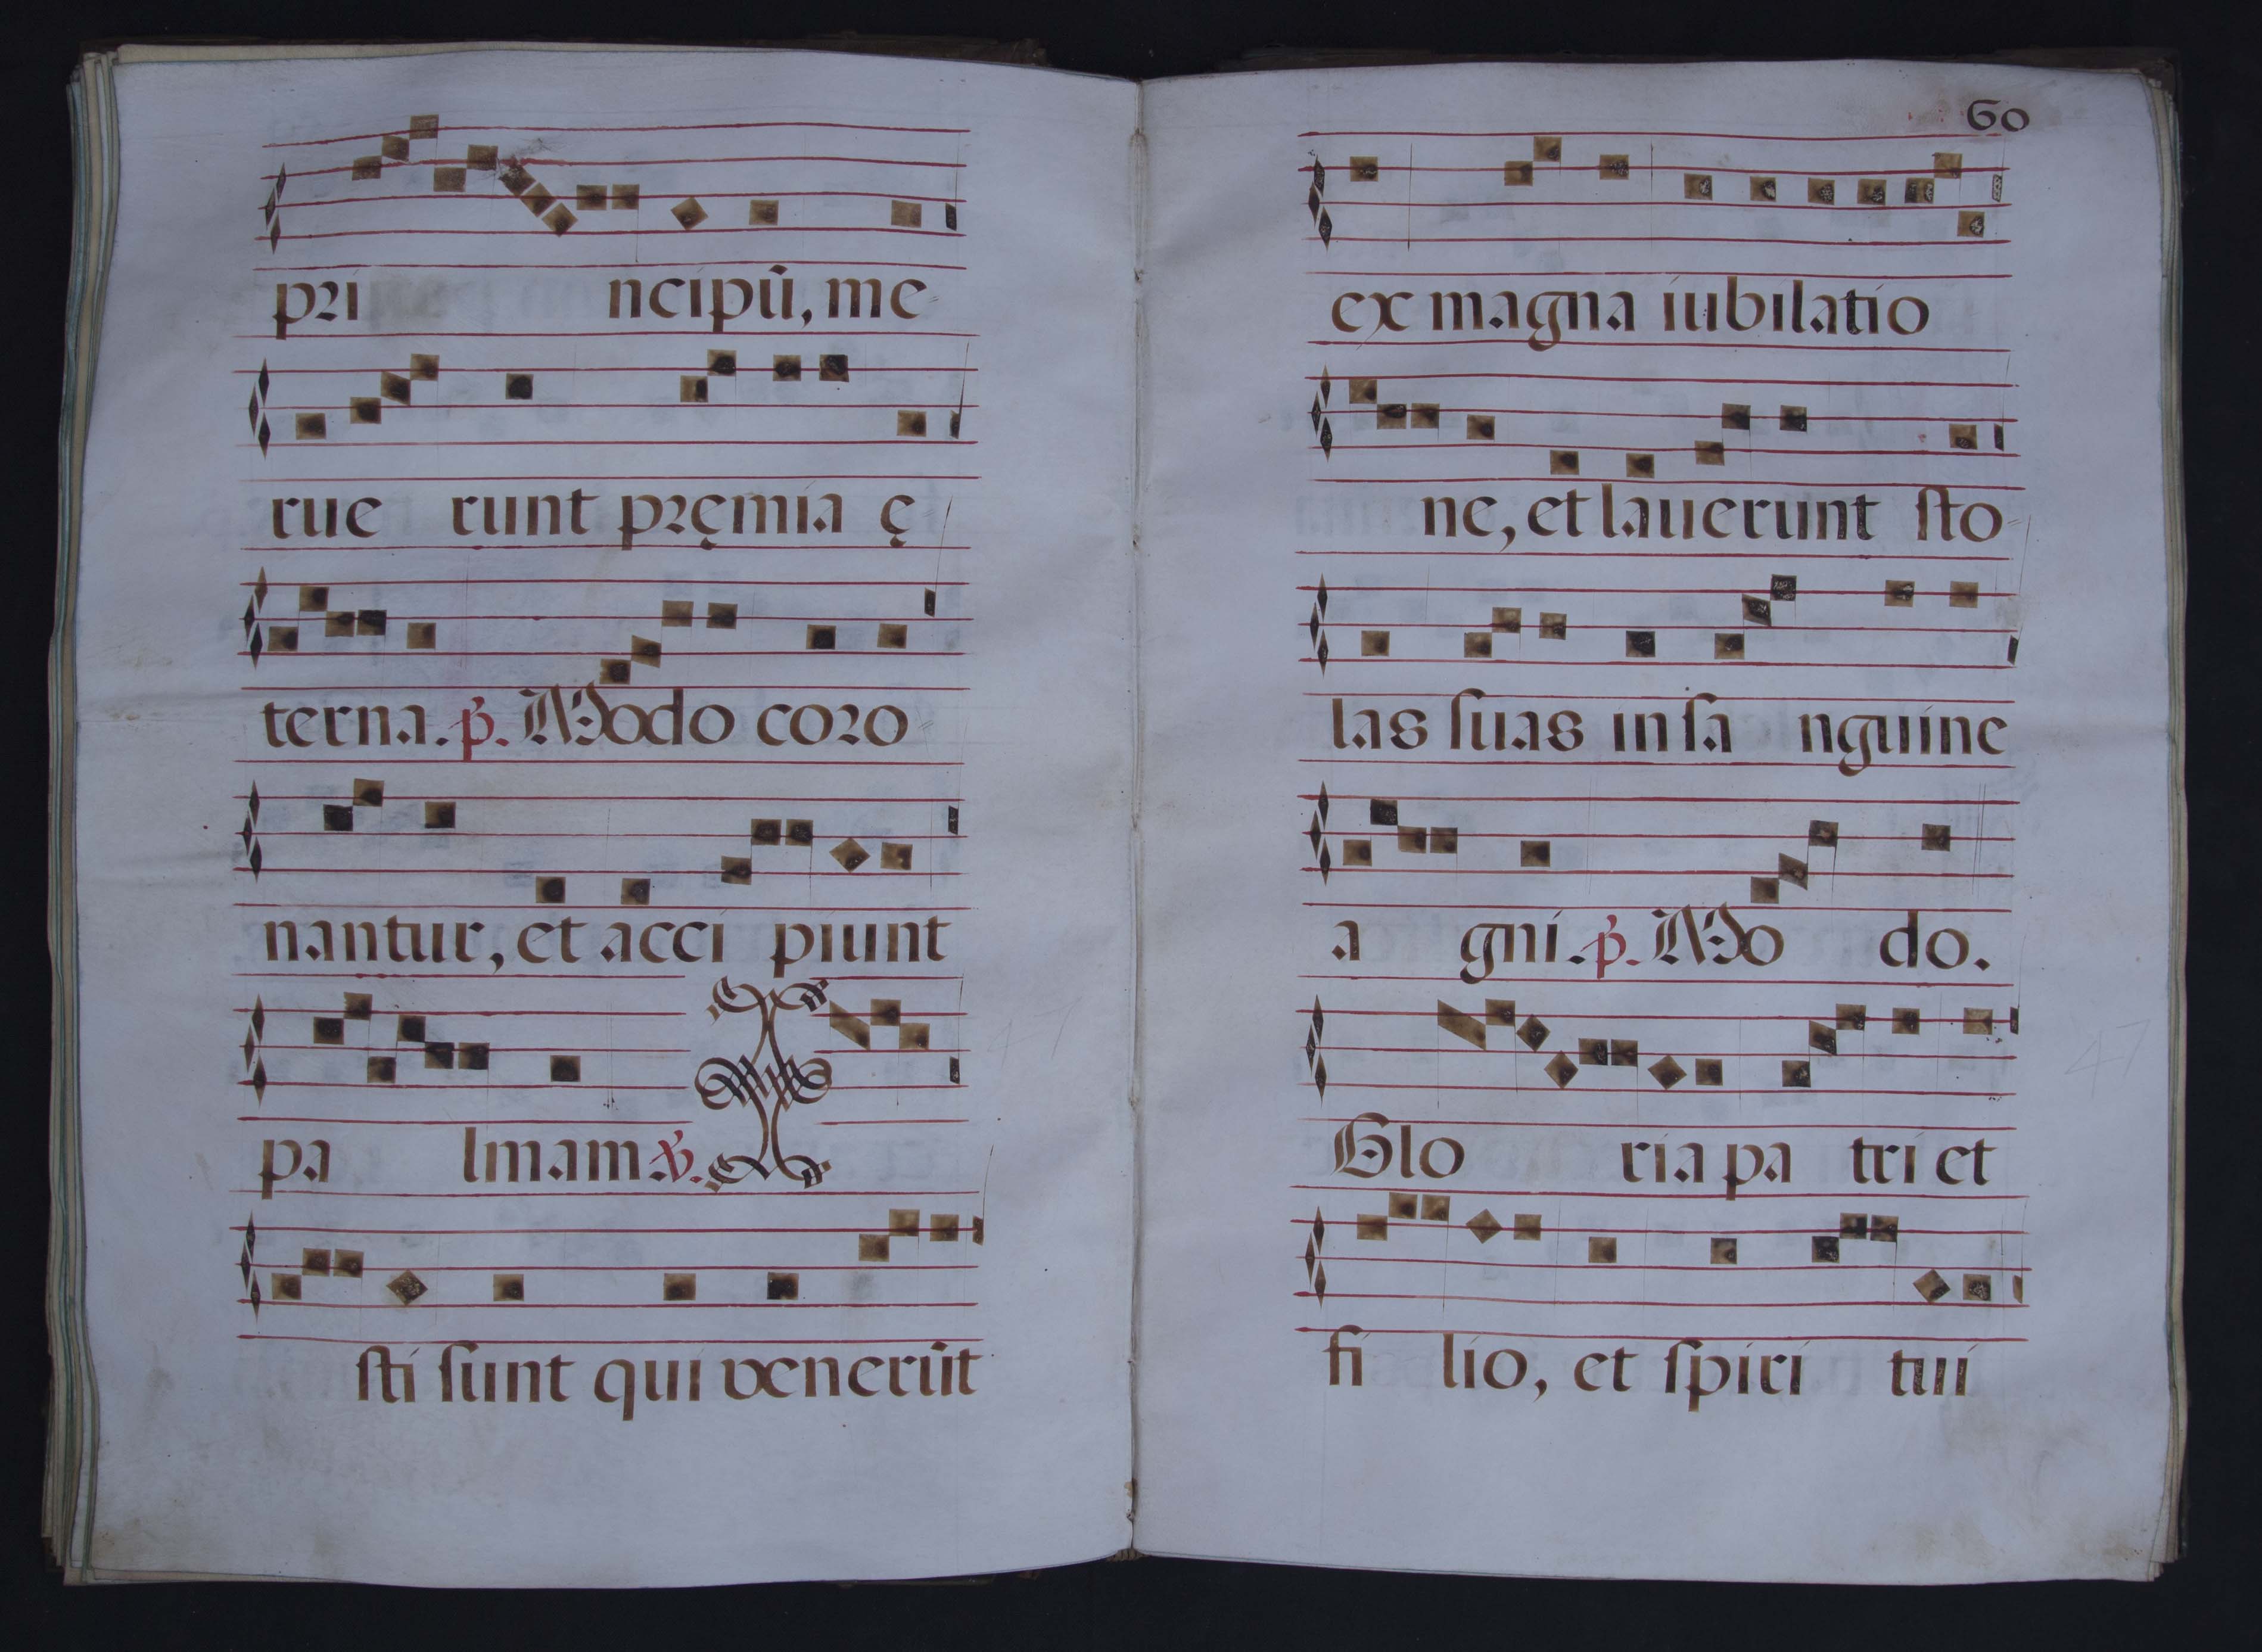 pri ncipũ, me-
rue runt pręmia ę
terna. p̃. Modo coro
nantur, et acci piunt
pa lmam. ℣. I
sti sunt qui venerũt
60
ex magna iubilatio
ne, et lauerunt sto-
las suas in sa nguine
a gni. p̃. Mo do.
Glo ria pa tri et
47
fi lio, et spiri tui